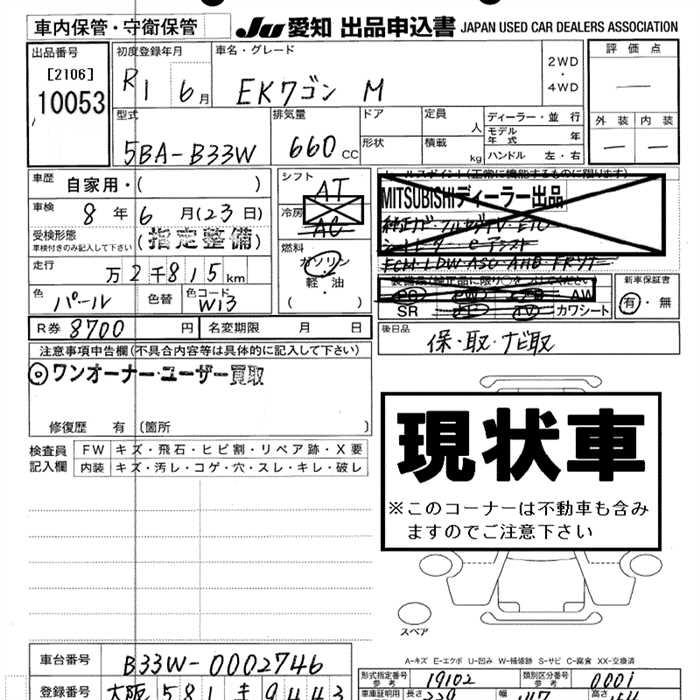 車内保管・守衛保管
JU 愛知 出品申込書 JAPAN USED CAR DEALERS ASSOCIATION
出品番号
[2106]
10053
初度登録年月
R1 6月
車名・グレード
EKワゴン M
2WD
・
4WD
評価点
—
外装 内装
— —
型式
5BA-B33W
排気量
660 CC
ドア
形状
定員 人
積載 kg
ディーラー・並行
モデル年式 年
ハンドル 左・右
車歴 自家用・( )
車検 8年 6月(23日)
受検形態
車検付きのみ記入して下さい
(指定整備)
走行 万2千815km
色 パール
色替
色コード W13
シフト
AT
冷房
AC
燃料
ガソリン・
軽油
( ・ )
セールスポイント(正常に機能するものに限ります)
MITSUBISHIディーラー出品
純正ナビ・フルセグTV・ETC
FCM・LDW・ASC・AHB・
AW
SR カワシート
新車保証書
有・無
R券 8700円
名変期限 月 日
後日品
保・取・ナビ取
注意事項申告欄(不具合内容等は具体的に記入して下さい)
◎ワンオーナー・ユーザー買取
修復歴 有 (箇所 )
検査員記入欄
FW キズ・飛石・ヒビ割・リペア跡・X要
内装 キズ・汚レ・コゲ・穴・スレ・キレ・破レ
現状車
※このコーナーは不動車も含み
ますのでご注意下さい
スペア
A-キズ E-エクボ U-凹み W-補修跡 S-サビ C-腐食 XX-交換済
車台番号 B33W-0002746
登録番号 大阪 581 キ 9443
型式指定番号 参考 19102
類別区分番号 参考 0001
車庫証明用 参考
長さ
幅
高さ